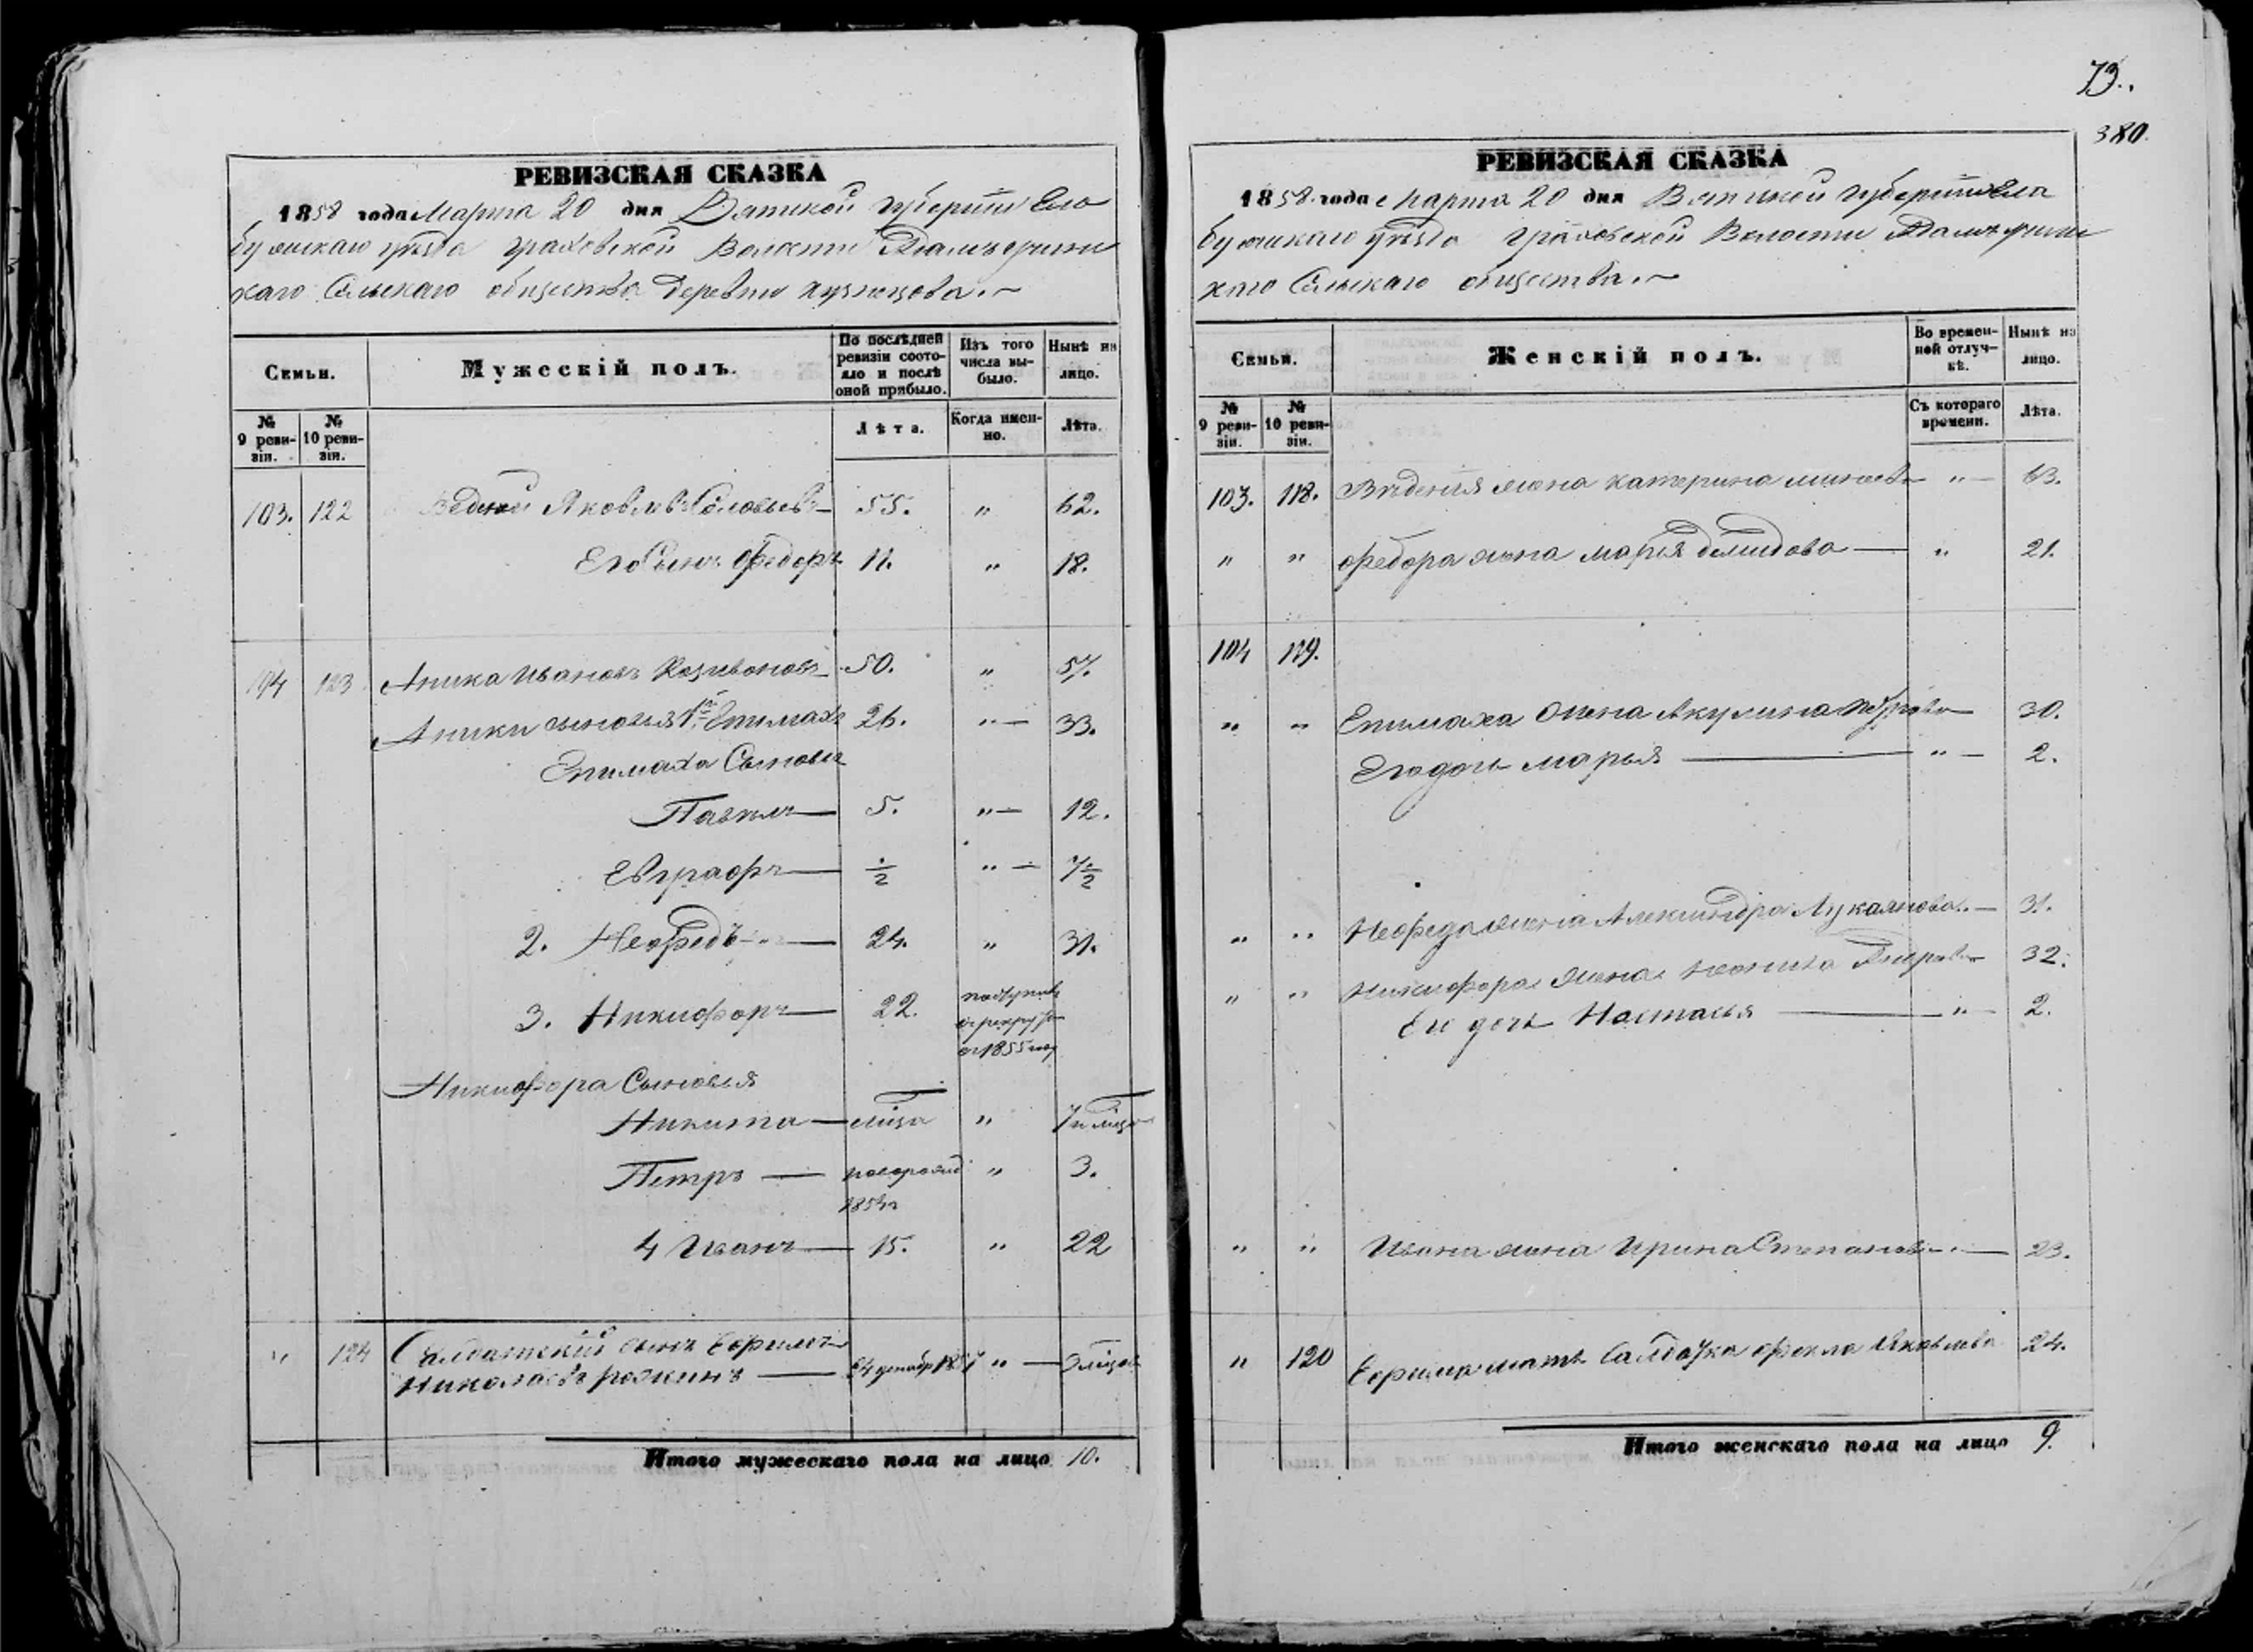 73.
380.
РЕВИЗСКАЯ СКАЗКА
1858 года Марта 20 дня Вятской губернии Ела
бужскаго уѣзда Граховской Волости
каго Сельскаго общества деревни Кузнецова
Семьи.
Мужескій полъ.
По послѣдней ревизіи состо-яло и послѣ оной прибыло.
Изъ того числа вы-было.
Нынѣ на лицо.
№ 9 реви-зіи.
№ 10 реви-зіи.
Лѣта.
Когда имен-но.
Лѣта.
103. 122 Яковлевъ Соловьевъ 55. " 62.
Его Сынъ Федоръ 11. " 18.
104 123 Аника Ивановъ 50. " 57.
Аники сыновья 1й Епимахъ 26. " 33.
Епимаха Сыновья
Павилъ 5. " 12.
Евграфъ ½ " 7½
2. Нефедъ 24. " 31.
3. Никифоръ 22. поступилъ
въ рекруты
въ 1855 году
Никифора Сыновья
Никита " 7
Петръ " 3.
4 Иванъ 15. " 22
" 124 Салдатскій сынъ Ефимъ
Николаевъ 24 декабр 1857 "
Итого мужескаго пола на лицо 10.
РЕВИЗСКАЯ СКАЗКА
1858 года Марта 20 дня Вятской губерніи Ела
бужскаго уѣзда Граховской Волости
каго Сельскаго общества
Семьи.
Женскій полъ.
Во времен-ной отлуч-кѣ.
Нынѣ на лицо.
№ 9 реви-зіи.
№ 10 реви-зіи.
Съ котораго времени.
Лѣта.
103. 118. жена Катерина " 63.
" " Федора жена Марья Демидова " 21.
104 119.
" " Епимаха жена Акулина Петрова 30.
Его дочь Марья " 2.
" " Нефеда жена Александра Лукаянова 31.
" " Никифора жена 32.
Его дочь Настасья " 2.
" " Ивана жена Ирина Степанова 23.
" 120 Ефима мать Салдатка Фекла Яковлева 24.
Итого женскаго пола на лицо 9.